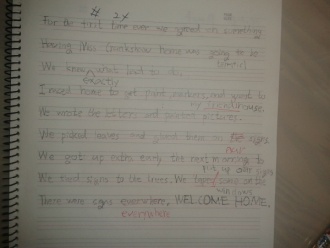 For the first time ever we agreed on something
Having Mrs. home are going to be
special
We knew what had to do.
exactly
I went home to get paint, markers, and went to
my friend's house.
We wrote the letters and painted pictures.
We picked leaves and glued them on signs
our
We got up extra early the next morning to
put up our signs
We tied signs to the trees. We taped some on the
windows
There were signs everywhere, WELCOME HOME,
everywhere